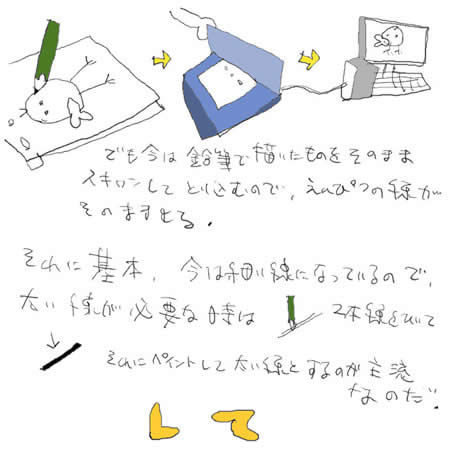 でも今は鉛筆で描いたものをそのまま
スキャンして とり込むので、えんぴつの線が
そのまますとる.
それに基本、今は細い線になっているので、
太い線が必要な時は 2本線をひいて
それにペイントして太い線とするのが主流
なのだ.